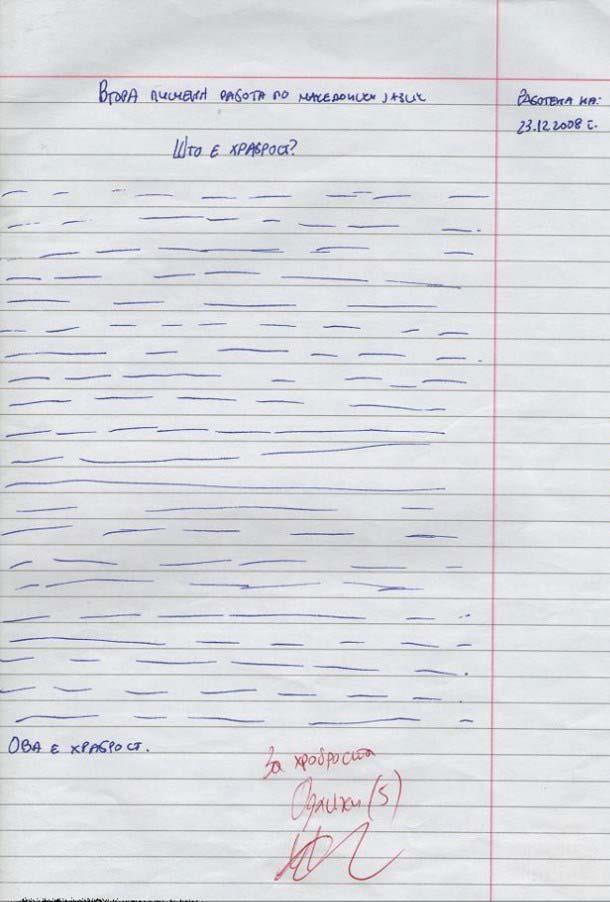 ВТОРА ПИСМЕНА РАБОТА ПО МАКЕДОНСКИ ЈАЗИК
РАБОТЕНА НА:
23.12.2008 г.
ШТО Е ХРАБРОСТ?
ОВА Е ХРАБРОСТ.
За храброста
Одличен (5)